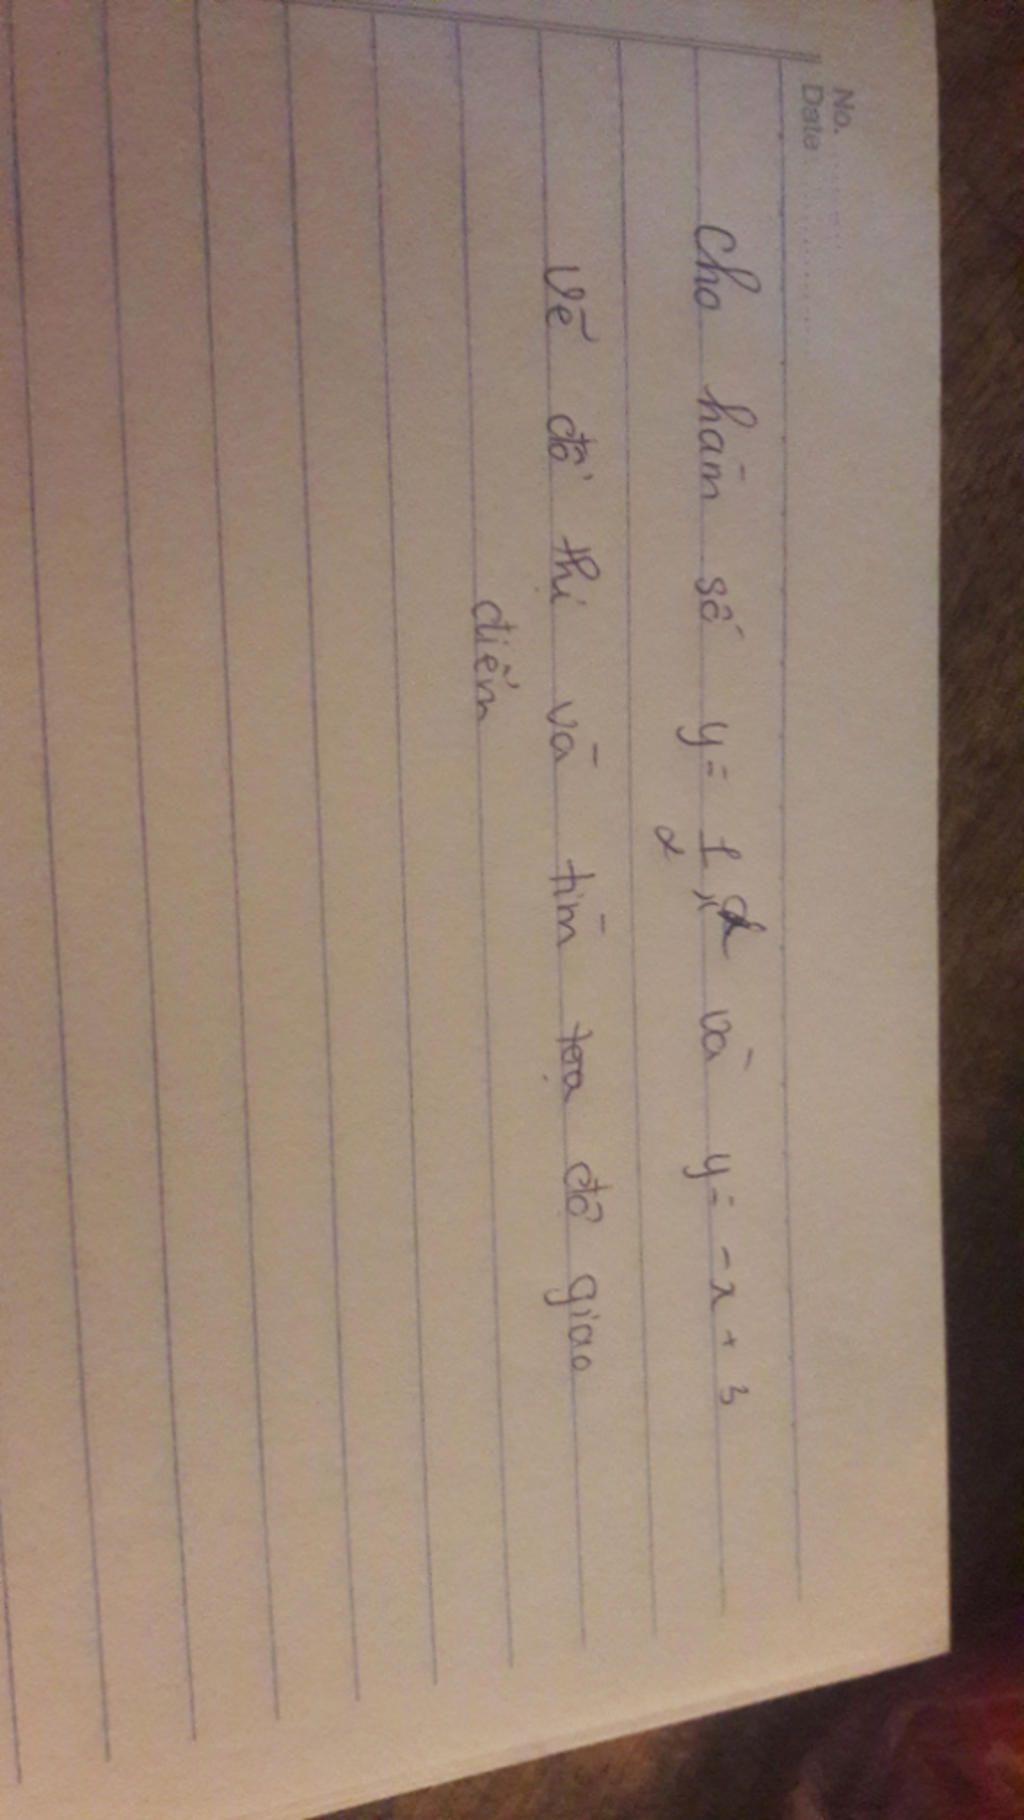 No.
Date
Cho hàm số y = 1/2 x² và y = -x + 3
Vẽ đồ thị và tìm tọa độ giao
điểm